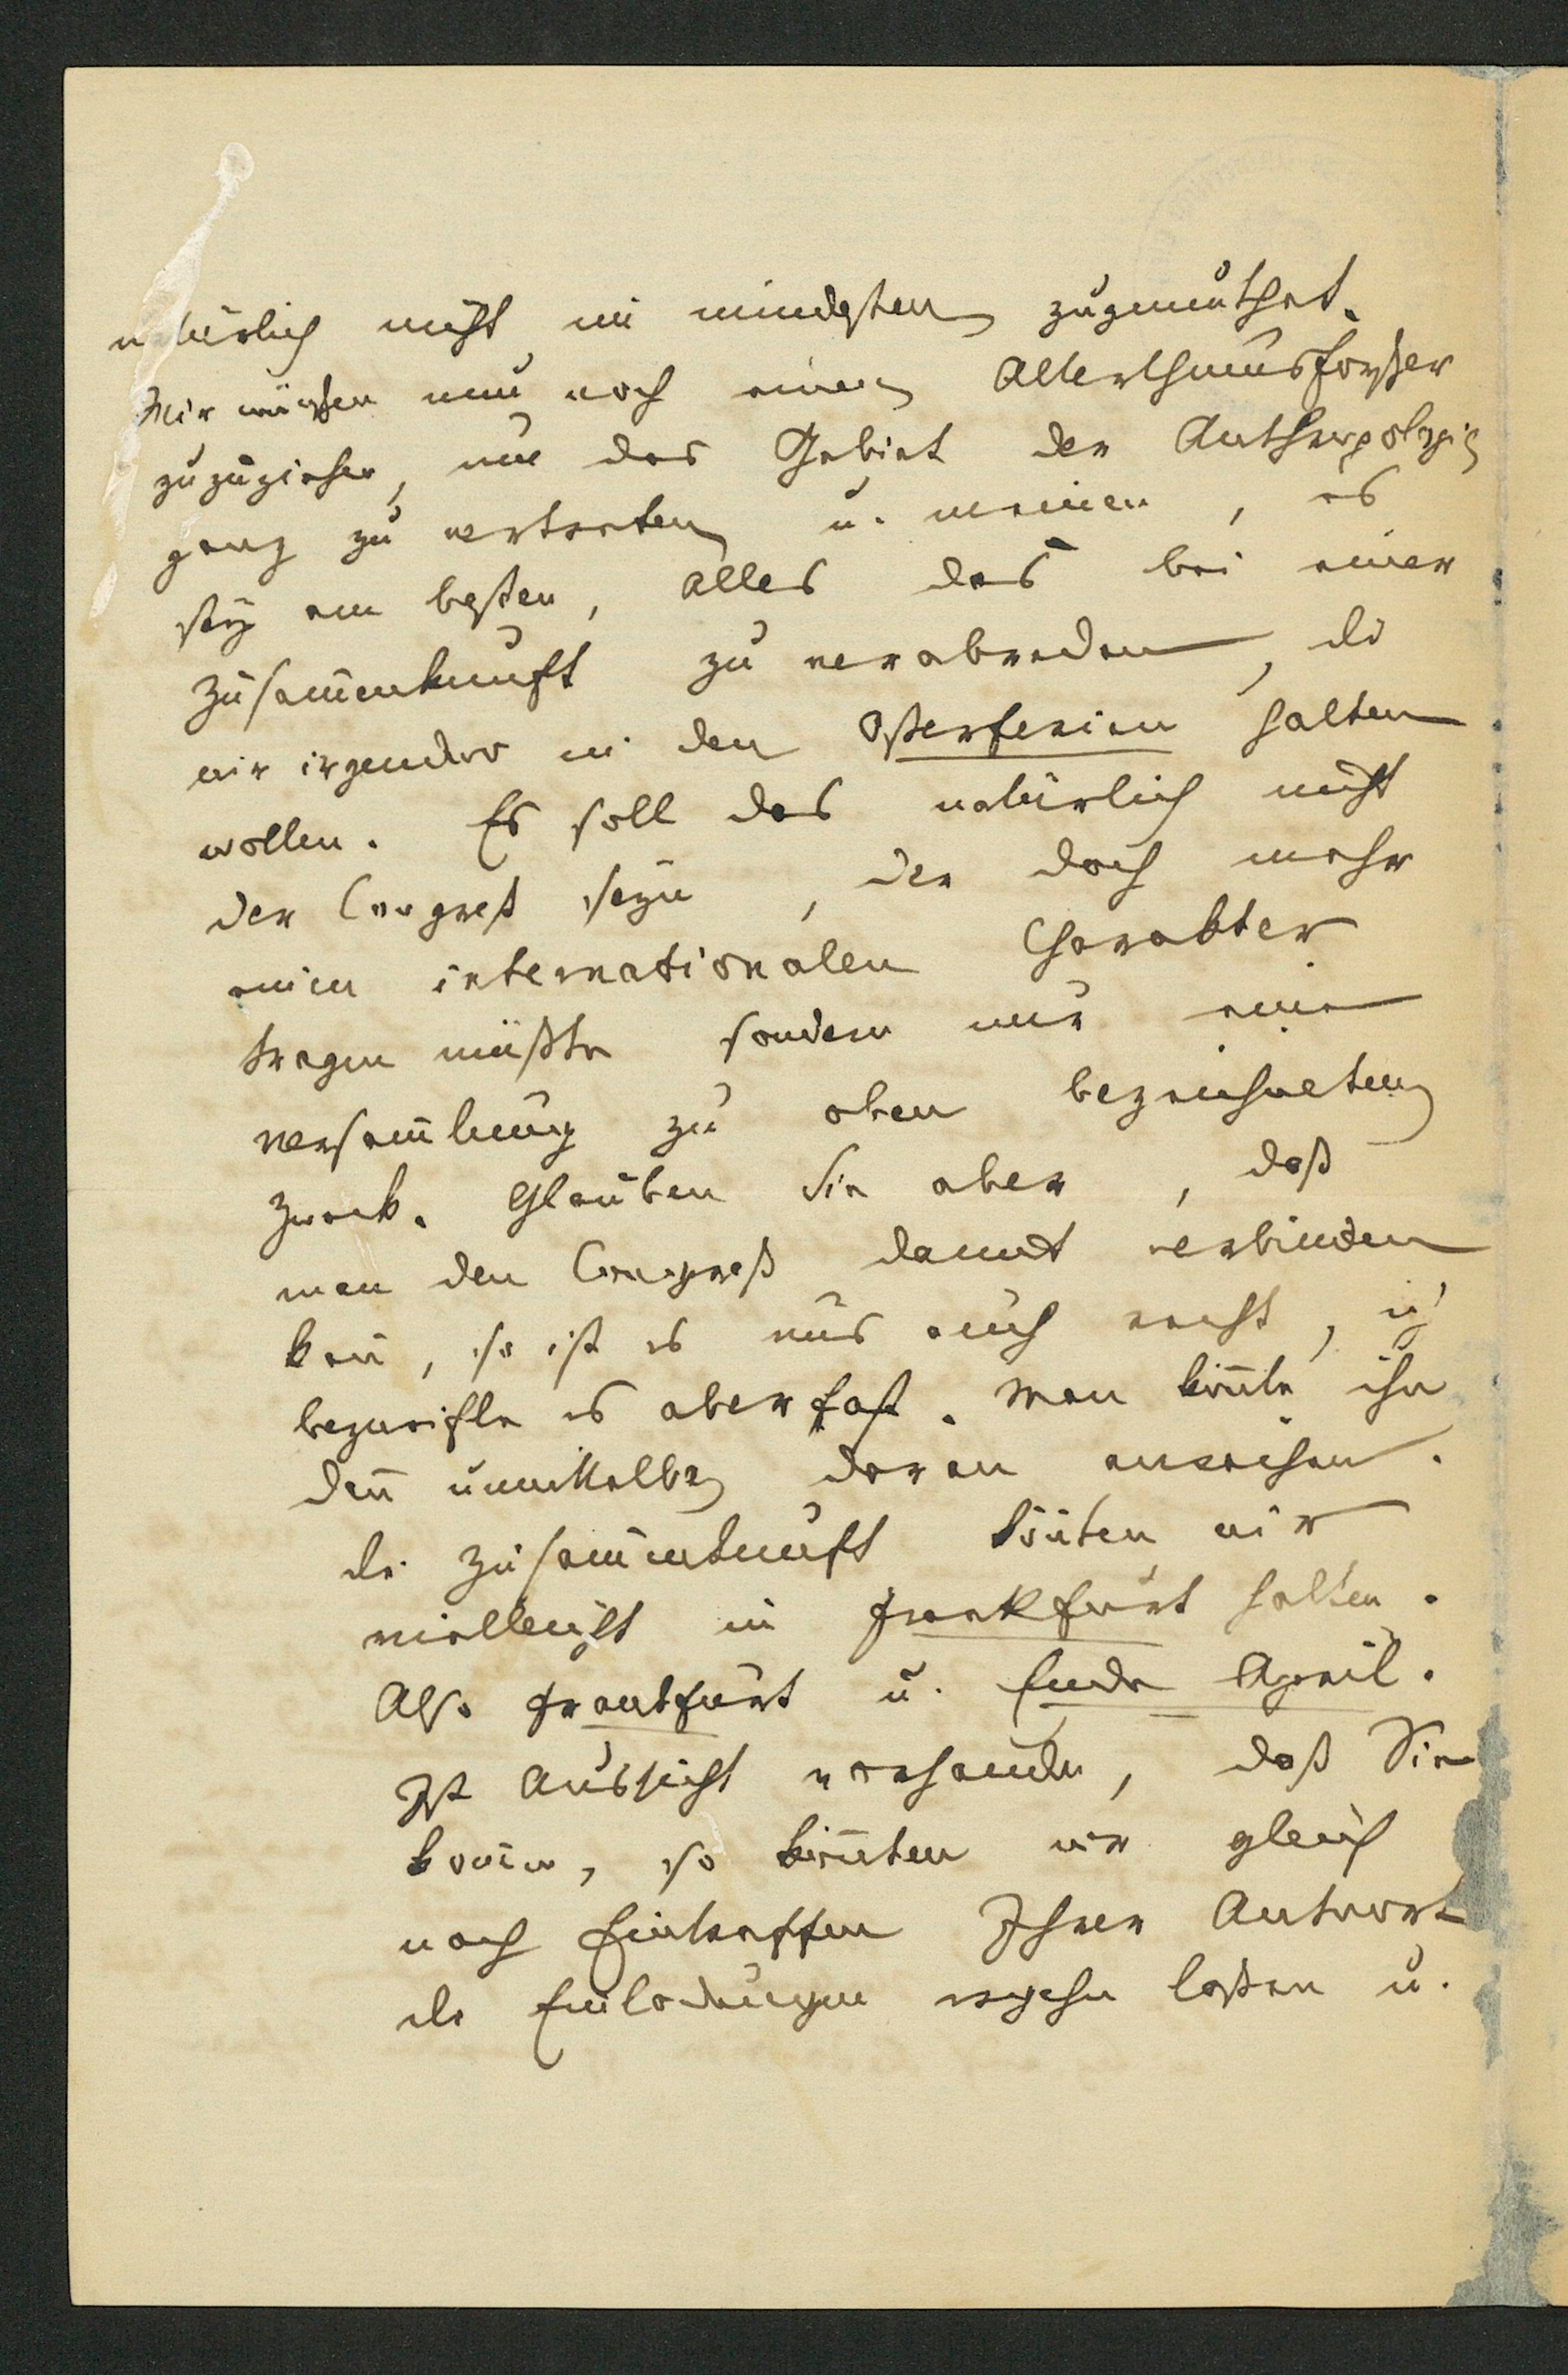 natürlich nicht im mindesten zugemuthet.
Wir müssen nun noch einen Alterthumsforscher
zuzuziehen, um das Gebiet der Anthropologie
ganz zu vertreten u. meinen, es
sey am besten, alles das bei einer
Zusam̄enkunft zu verabreden, die
wir irgendwo in den Osterferien halten
wollen. Es soll das natürlich nicht
der Congreß seyn, der doch mehr
einen internationalen Charakter
tragen müßte sondern nur eine
Versam̄lung zu oben bezeichneten
Zweck. Glauben Sie aber, daß
man den Congreß damit verbinden
kan̄, so ist es uns auch recht, ich
bezweifle es aber fast. Man kön̄te ihn
dan̄ unmittelbar daran anreihen.
Die Zusam̄enkunft kön̄ten wir
vielleicht in Frankfurt halten.
Also Frankfurt u. Ende April.
Ist Aussicht vorhanden, daß Sie
kom̄en, so kön̄ten wir gleich
nach Eintreffen Ihrer Antwort
die Einladungen ergehn laßen u.